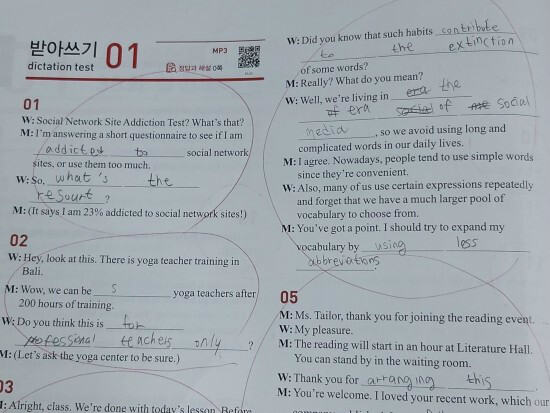 받아쓰기 01
dictation test
MP3
정답과 해설 0쪽
01
W: Social Network Site Addiction Test? What's that?
M: I'm answering a short questionnaire to see if I am
addicted to social network
sites, or use them too much.
W: So, what's the
resourt ?
M: (It says I am 23% addicted to social network sites!)
02
W: Hey, look at this. There is yoga teacher training in
Bali.
M: Wow, we can be s yoga teachers after
200 hours of training.
W: Do you think this is for
professional teachers only ?
M: (Let's ask the yoga center to be sure.)
03
M: Alright, class. We're done with today's lesson. Before
W: Did you know that such habits contribute
to the extinction
of some words?
M: Really? What do you mean?
W: Well, we're living in era the
of era social of me social
media , so we avoid using long and
complicated words in our daily lives.
M: I agree. Nowadays, people tend to use simple words
since they're convenient.
W: Also, many of us use certain expressions repeatedly
and forget that we have a much larger pool of
vocabulary to choose from.
M: You've got a point. I should try to expand my
vocabulary by using less
abbrevations .
05
M: Ms. Tailor, thank you for joining the reading event.
W: My pleasure.
M: The reading will start in an hour at Literature Hall.
You can stand by in the waiting room.
W: Thank you for arranging this .
M: You're welcome. I loved your recent work, which our